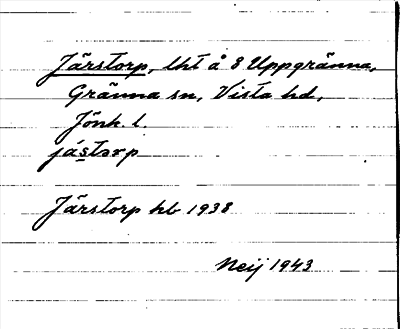 Järstorp, lht å 8 Uppgränna,
Gränna sn, Vista hd,
Jönk. l.
jás̱tərp
Järstorp hb 1938
Neij 1943